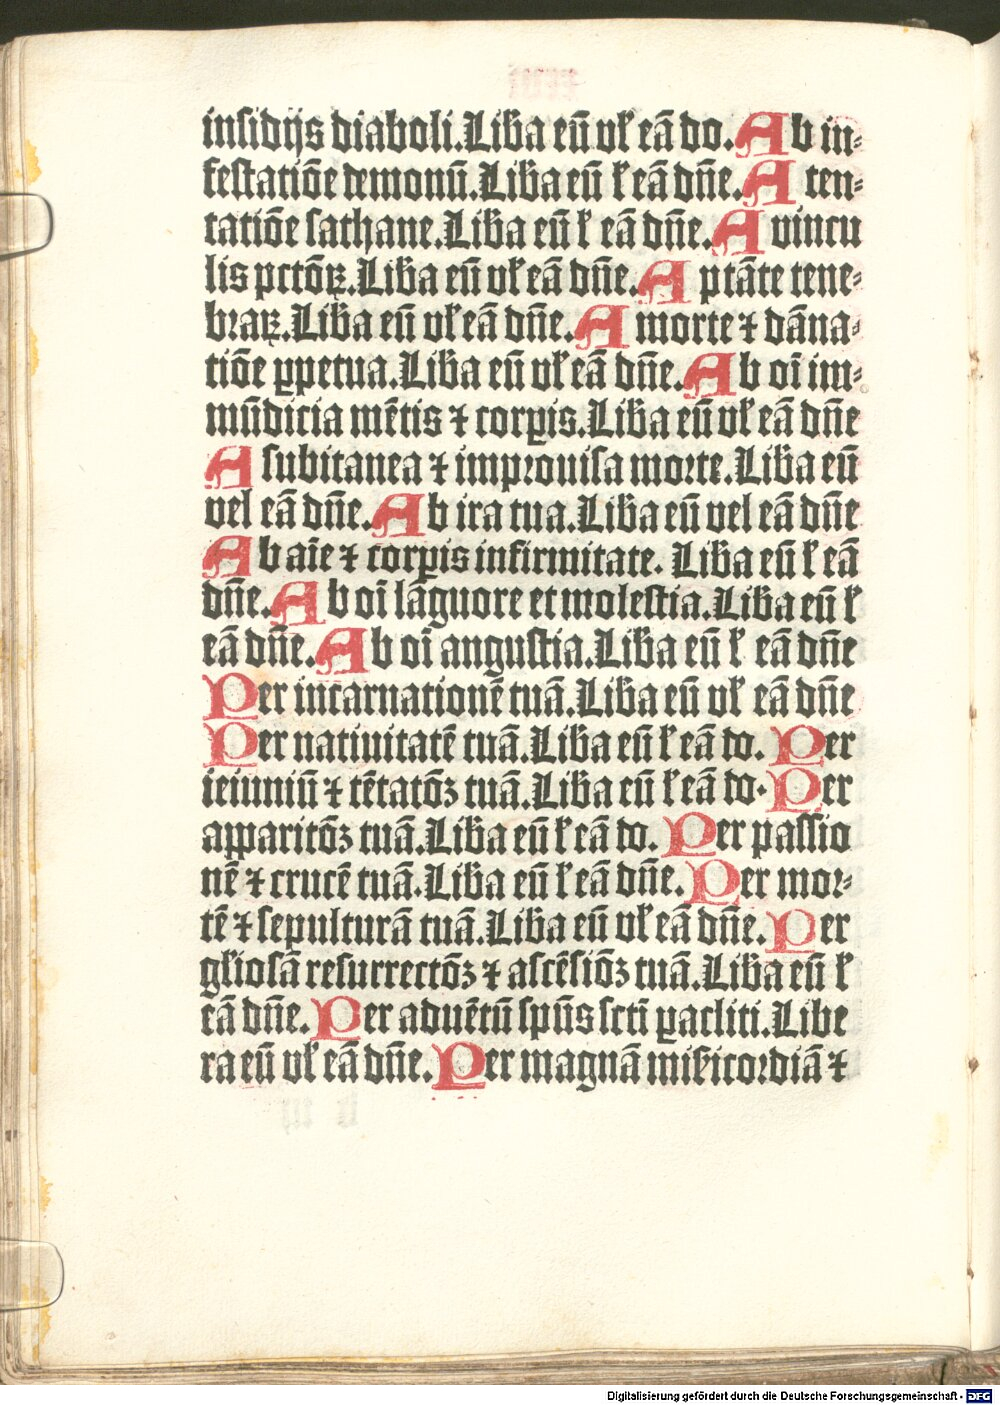 insidijs diaboli. Liba eū vl̕ eā do. Ab in⸗
festatiōe demonū. Liba eū l̕ eā dn̄e. A ten⸗
tatiōe sathane. Liba eū l̕ eā dn̄e. A vincu
lis pctōꝝ. Liba eū vl̕ eā dn̄e. A ptāte tene⸗
braꝝ. Liba eū vl̕ eā dn̄e. A morte ⁊ dāna⸗
tiōe ꝑpetua. Liba eū vl̕ eā dn̄e. Ab oī im⸗
mūdicia mētis ⁊ corꝑis. Liba eū vl̕ eā dn̄e
A subitanea ⁊ improuisa morte. Liba eū
vel eā dn̄e. Ab ira tua. Liba eū vel eā dn̄e
Ab aīe ⁊ corꝑis infirmitate. Liba eū l̕ eā
dn̄e. Ab oī lāguore et molestia. Liba eū l̕
eā dn̄e. Ab oī angustia. Liba eū l̕ eā dn̄e
Per incarnationē tuā. Liba eū vl̕ eā dn̄e
Per natiuitatē tuā. Liba eū l̕ eā do. Per
ieiuniū ⁊ tētatōꝫ tuā. Liba eū l̕ eā do. Per
apparitōꝫ tuā. Liba eū l̕ eā do. Per passio
nē ⁊ crucē tuā. Liba eū l̕ eā dn̄e. Per mor⸗
tē ⁊ sepulturā tuā. Liba eū vl̕ eā dn̄e. Per
gl̕iosā resurrectōꝫ ⁊ ascēsiōꝫ tuā. Liba eū l̕
eā dn̄e. Per aduētū spūs scti ꝑacliti. Libe
ra eū vl̕ eā dn̄e. Per magnā mis̄icordiā ⁊
Digitalisierung gefördert durch die Deutsche Forschungsgemeinschaft - DFG